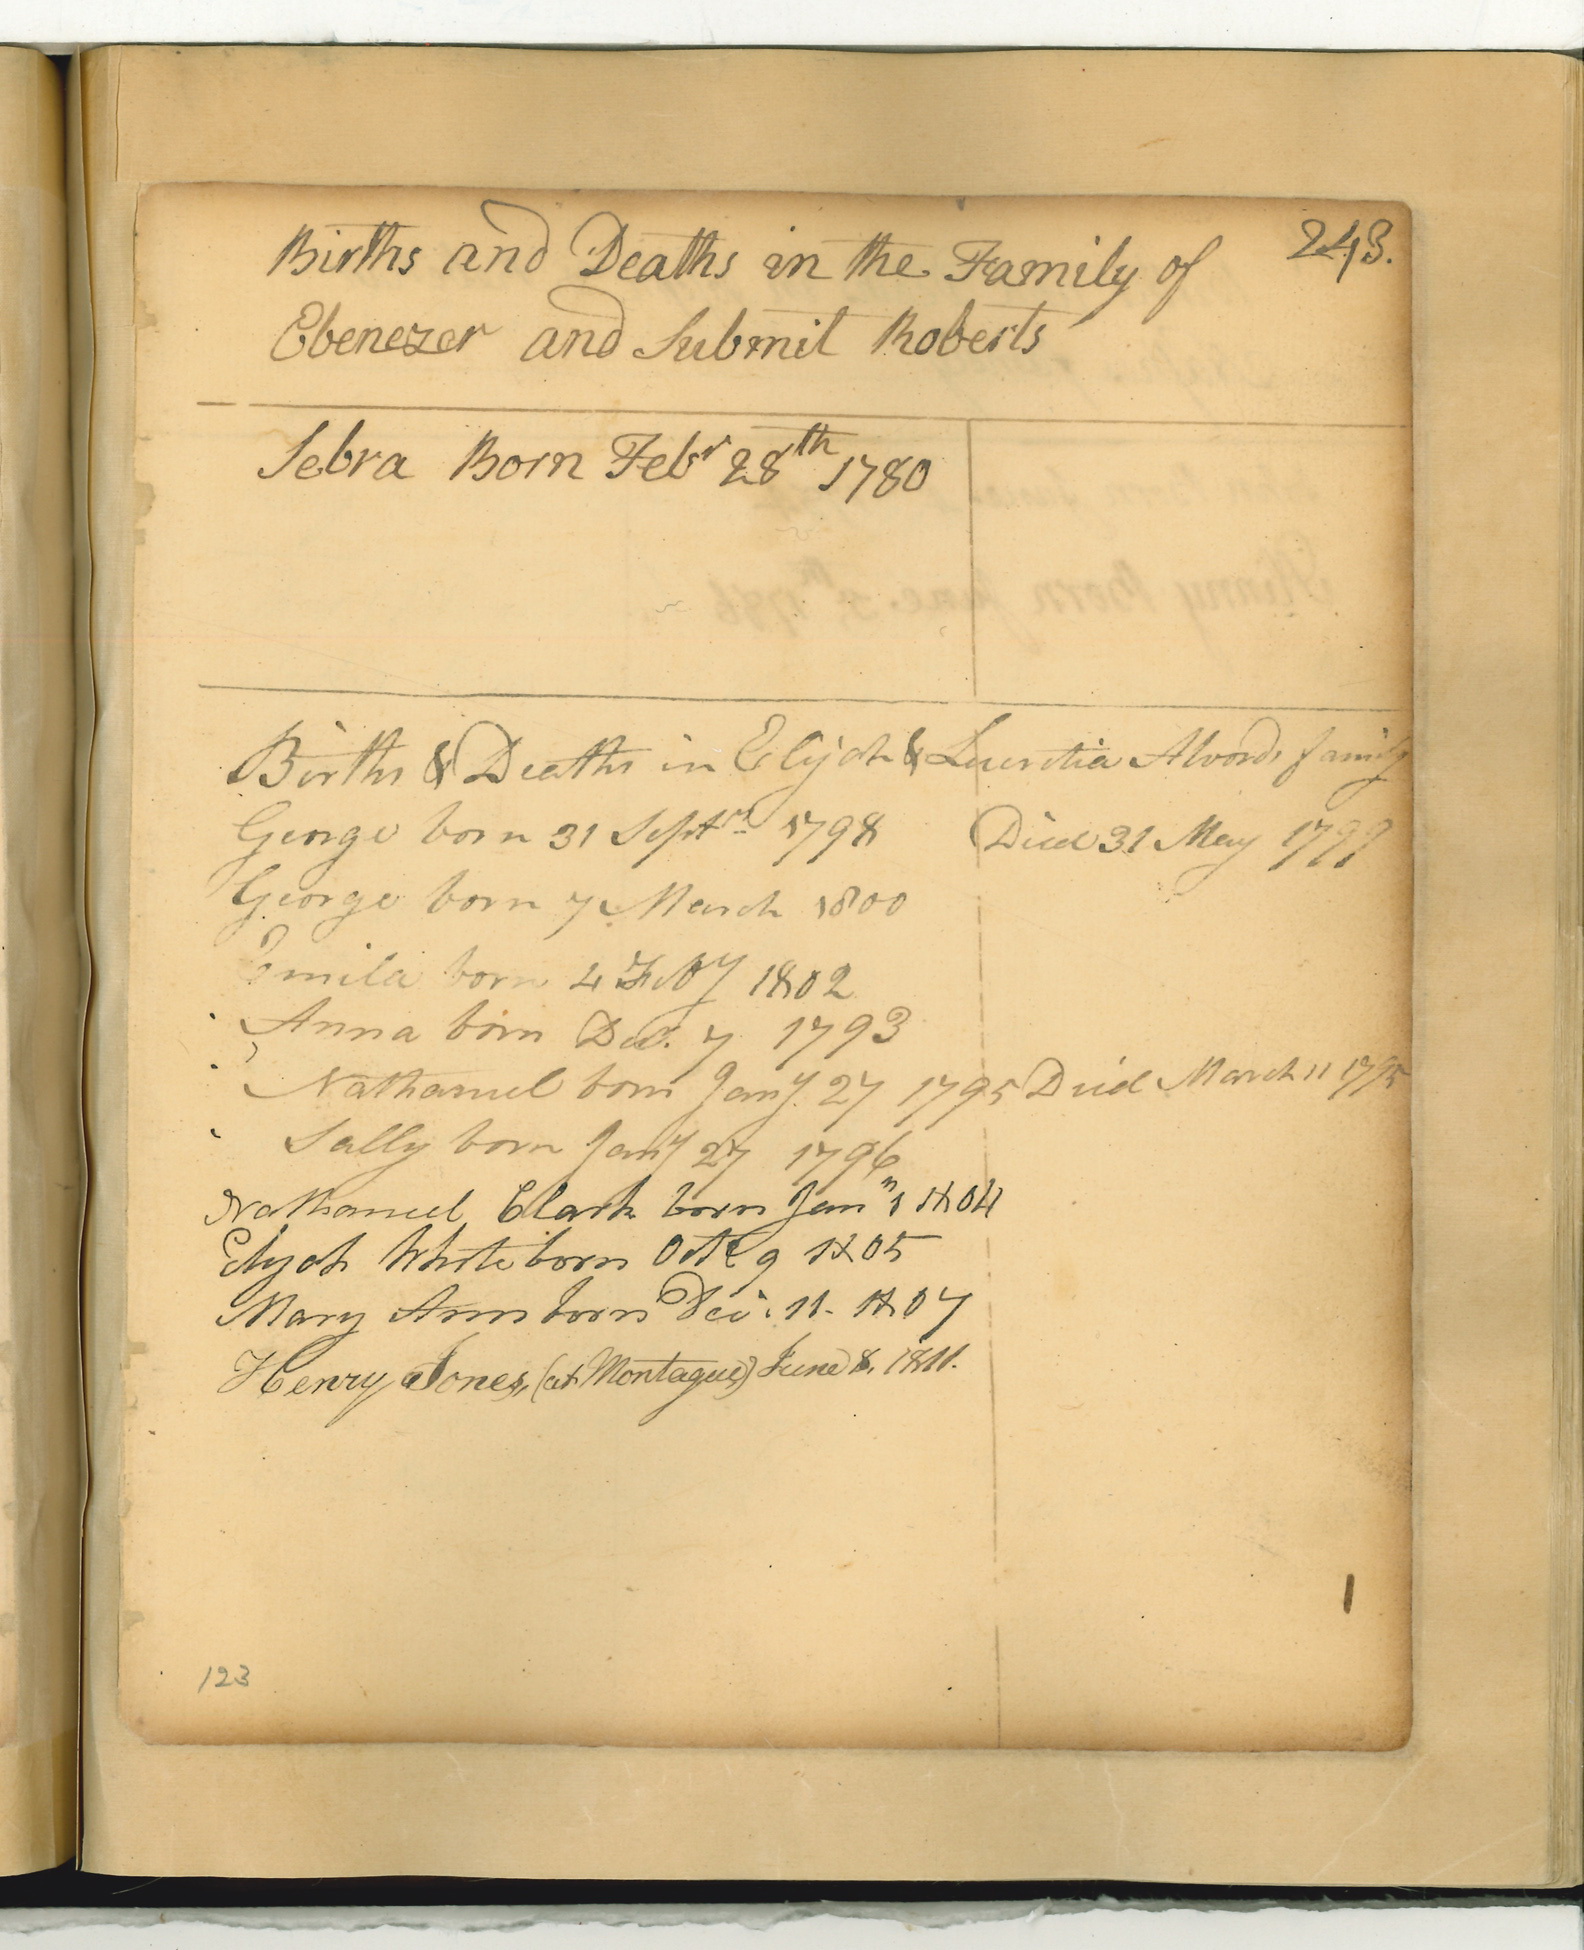 243.
Births and Deaths in the Family of
Ebenezer and Submit Roberts
Sebra Born Febr 28th 1780
Births & Deaths in Elijah & Lucretia Alvords family
George born 31 Septr 1798 Died 31 May 1799
George born 7 March 1800
born 4 Feby 1802
Anna born Dec. 7 1793
Nathaniel born Jany 27 1795 Died March 11 1795
Sally born Jany 27 1796
Nathaniel Clark born Jan" 1 1804
Elijah White born Octr 9 1805
Mary Ann born Dec. 11. 1807
Henry Jones, (at Montague) June 8. 1811.
1
123